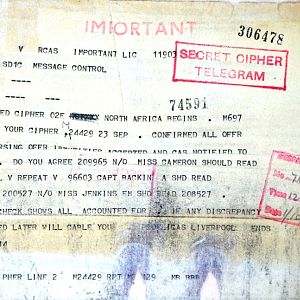 IMPORTANT
306478
V RCAS IMPORTANT LIC 11903
SD1C MESSAGE CONTROL
SECRET CIPHER
TELEGRAM
----
----
74591
ED CIPHER 02E NORTH AFRICA BEGINS . M697
YOUR CIPHER M24429 23 SEP . CONFIRMED ALL OFFR
OFFR IDENTITIES ACCEPTED AND CAS NOTIFIED TO
. DO YOU AGREE 209965 N/O MISS CAMERON SHOULD READ
L V REPEAT V . 96603 CAPT RACKIN A SHD READ
200527 N/O MISS JENKINS EM SHD READ 208527 .
CHECK SHOWS ALL ACCOUNTED FOR IF ANY DISCREPANCY
ED LATER WILL CABLE YOU LIVERPOOL ENDS
14
PHER LINE 2 M24429 RPT M24429 MR BBB